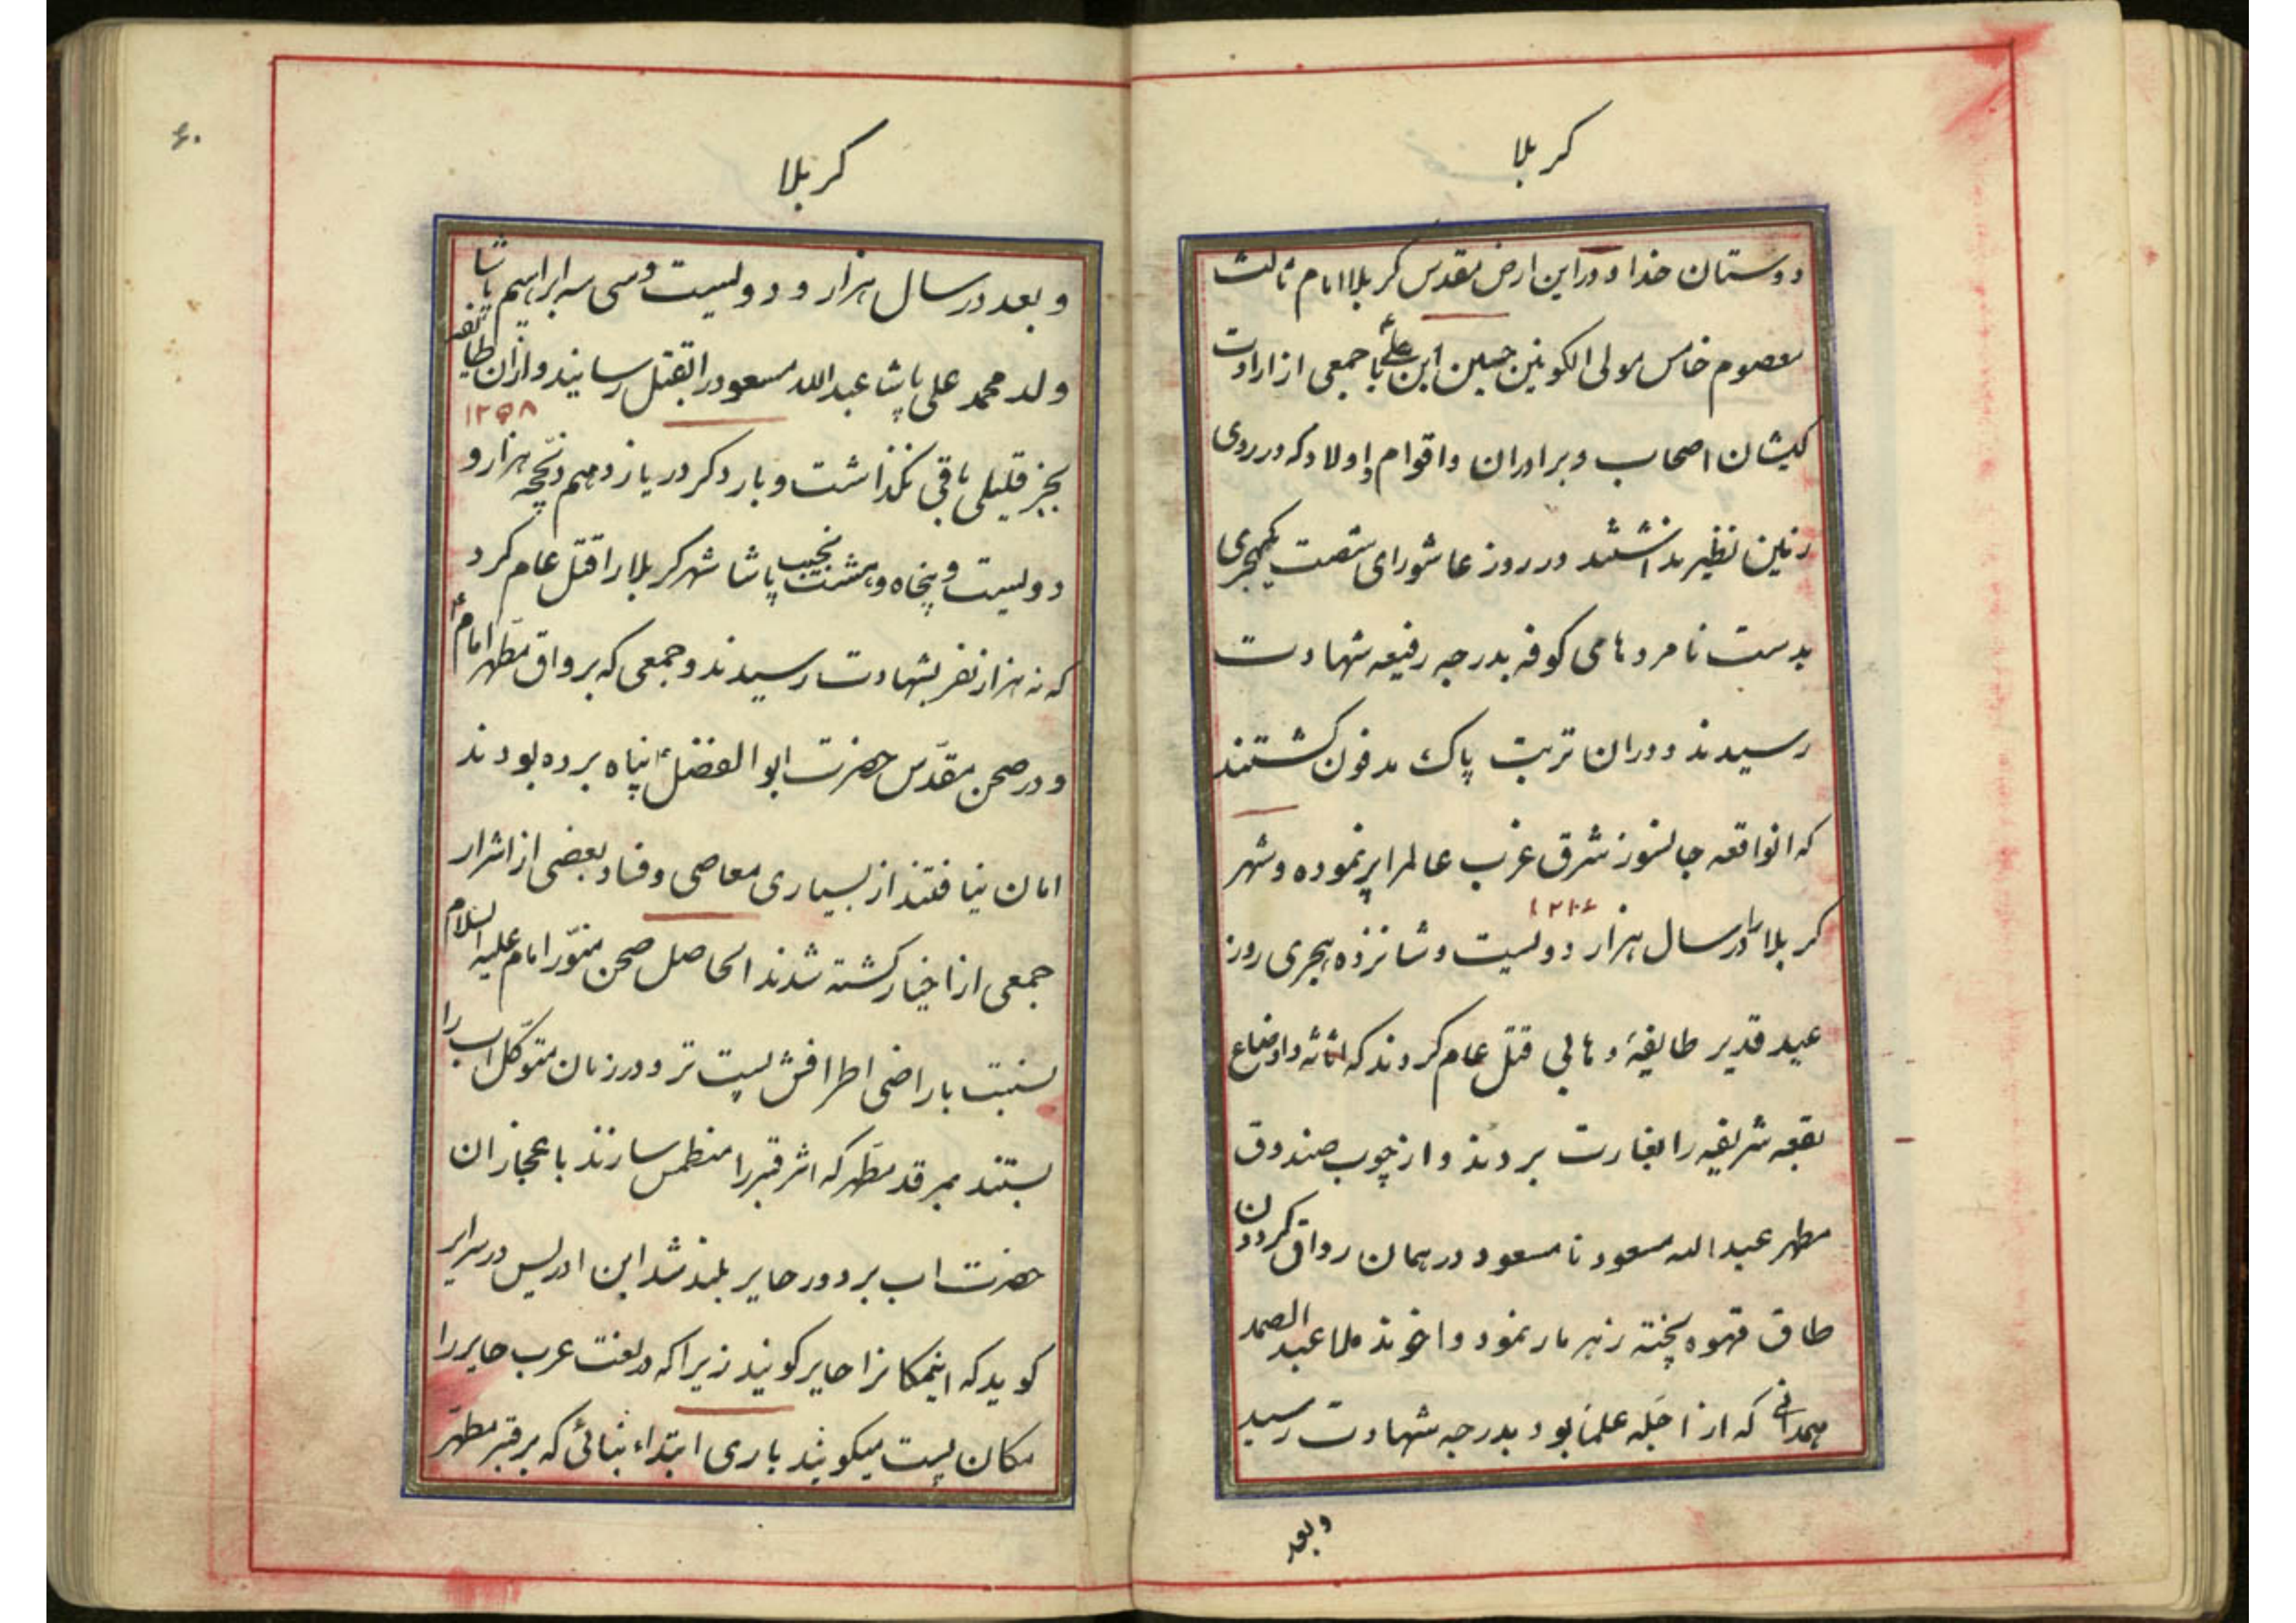 کربلا
دوستان خدا و در این ارض مقدس کربلا امام ثالث
معصوم خامس مولی الکونین حسین ابن علی ع با جمعی از ارادت
کیشان اصحاب و برادران و اقوام و اولاد که در روی
زمین نظیر نداشتند در روز عاشورای شصت یکهجری
بدست نامردهای کوفه بدرجه رفیعه شهادت
رسیدند و دران تربت پاک مدفون کشتند
که انواقعه جانسوز شرق غرب عالمرا پر نموده و شهر
۱۲۱۶
کربلا را در سال هزار دولیست و شانزده هجری روز
عید قدیر طایفهٔ وهابی قتل عام کردند که اثاثه و اوضاع
بقعه شریفه را بغارت بردند و از چوب صندوق
مطهر عبدالله مسعود نا مسعود در همان رواق کردون
طاق قهوه پخته زهر مار نمود و اخوند ملا عبد الصمد
همدانی که از اجله علما بود بدرجه شهادت رسید
و بعد
۶۰
کربلا
و بعد در سال هزار و دولیست و سی سه ابراهیم پاشا
ولد محمد علی پاشا عبدالله مسعود را بقتل رسانید و از آن طایفه
۱۲۵۸
بجز قلیلی باقی نکذاشت و بار دکر در یازدهم ذیحجه هزار و
دولیست و پنجاه و هشت نجیب پاشا شهر کربلا را قتل عام کرد
که نه هزار نفر بشهادت رسیدند و جمعی که برواق مطهر امام ع
و در صحن مقدّس حضرت ابو الفضل ع پناه برده بودند
امان نیافتند از بسیاری معاصی و فساد بعضی از اشرار
جمعی از اخیار کشته شدند الحاصل صحن منوّر امام علیه السلام
بنسبت باراضی اطرافش پست تر و در زمان متوکّل اب را
بستند بمرقد مطهر که اثر قبر را منطمس سازند باعجاز ان
حضرت اب بر دور حایر بلند شد ابن ادریس در سرایر
کوید که اینمکانرا حایر کویند زیرا که در لغت عرب حایر را
مکان پست میکویند باری ابتداء بنائی که بر قبر مطهر